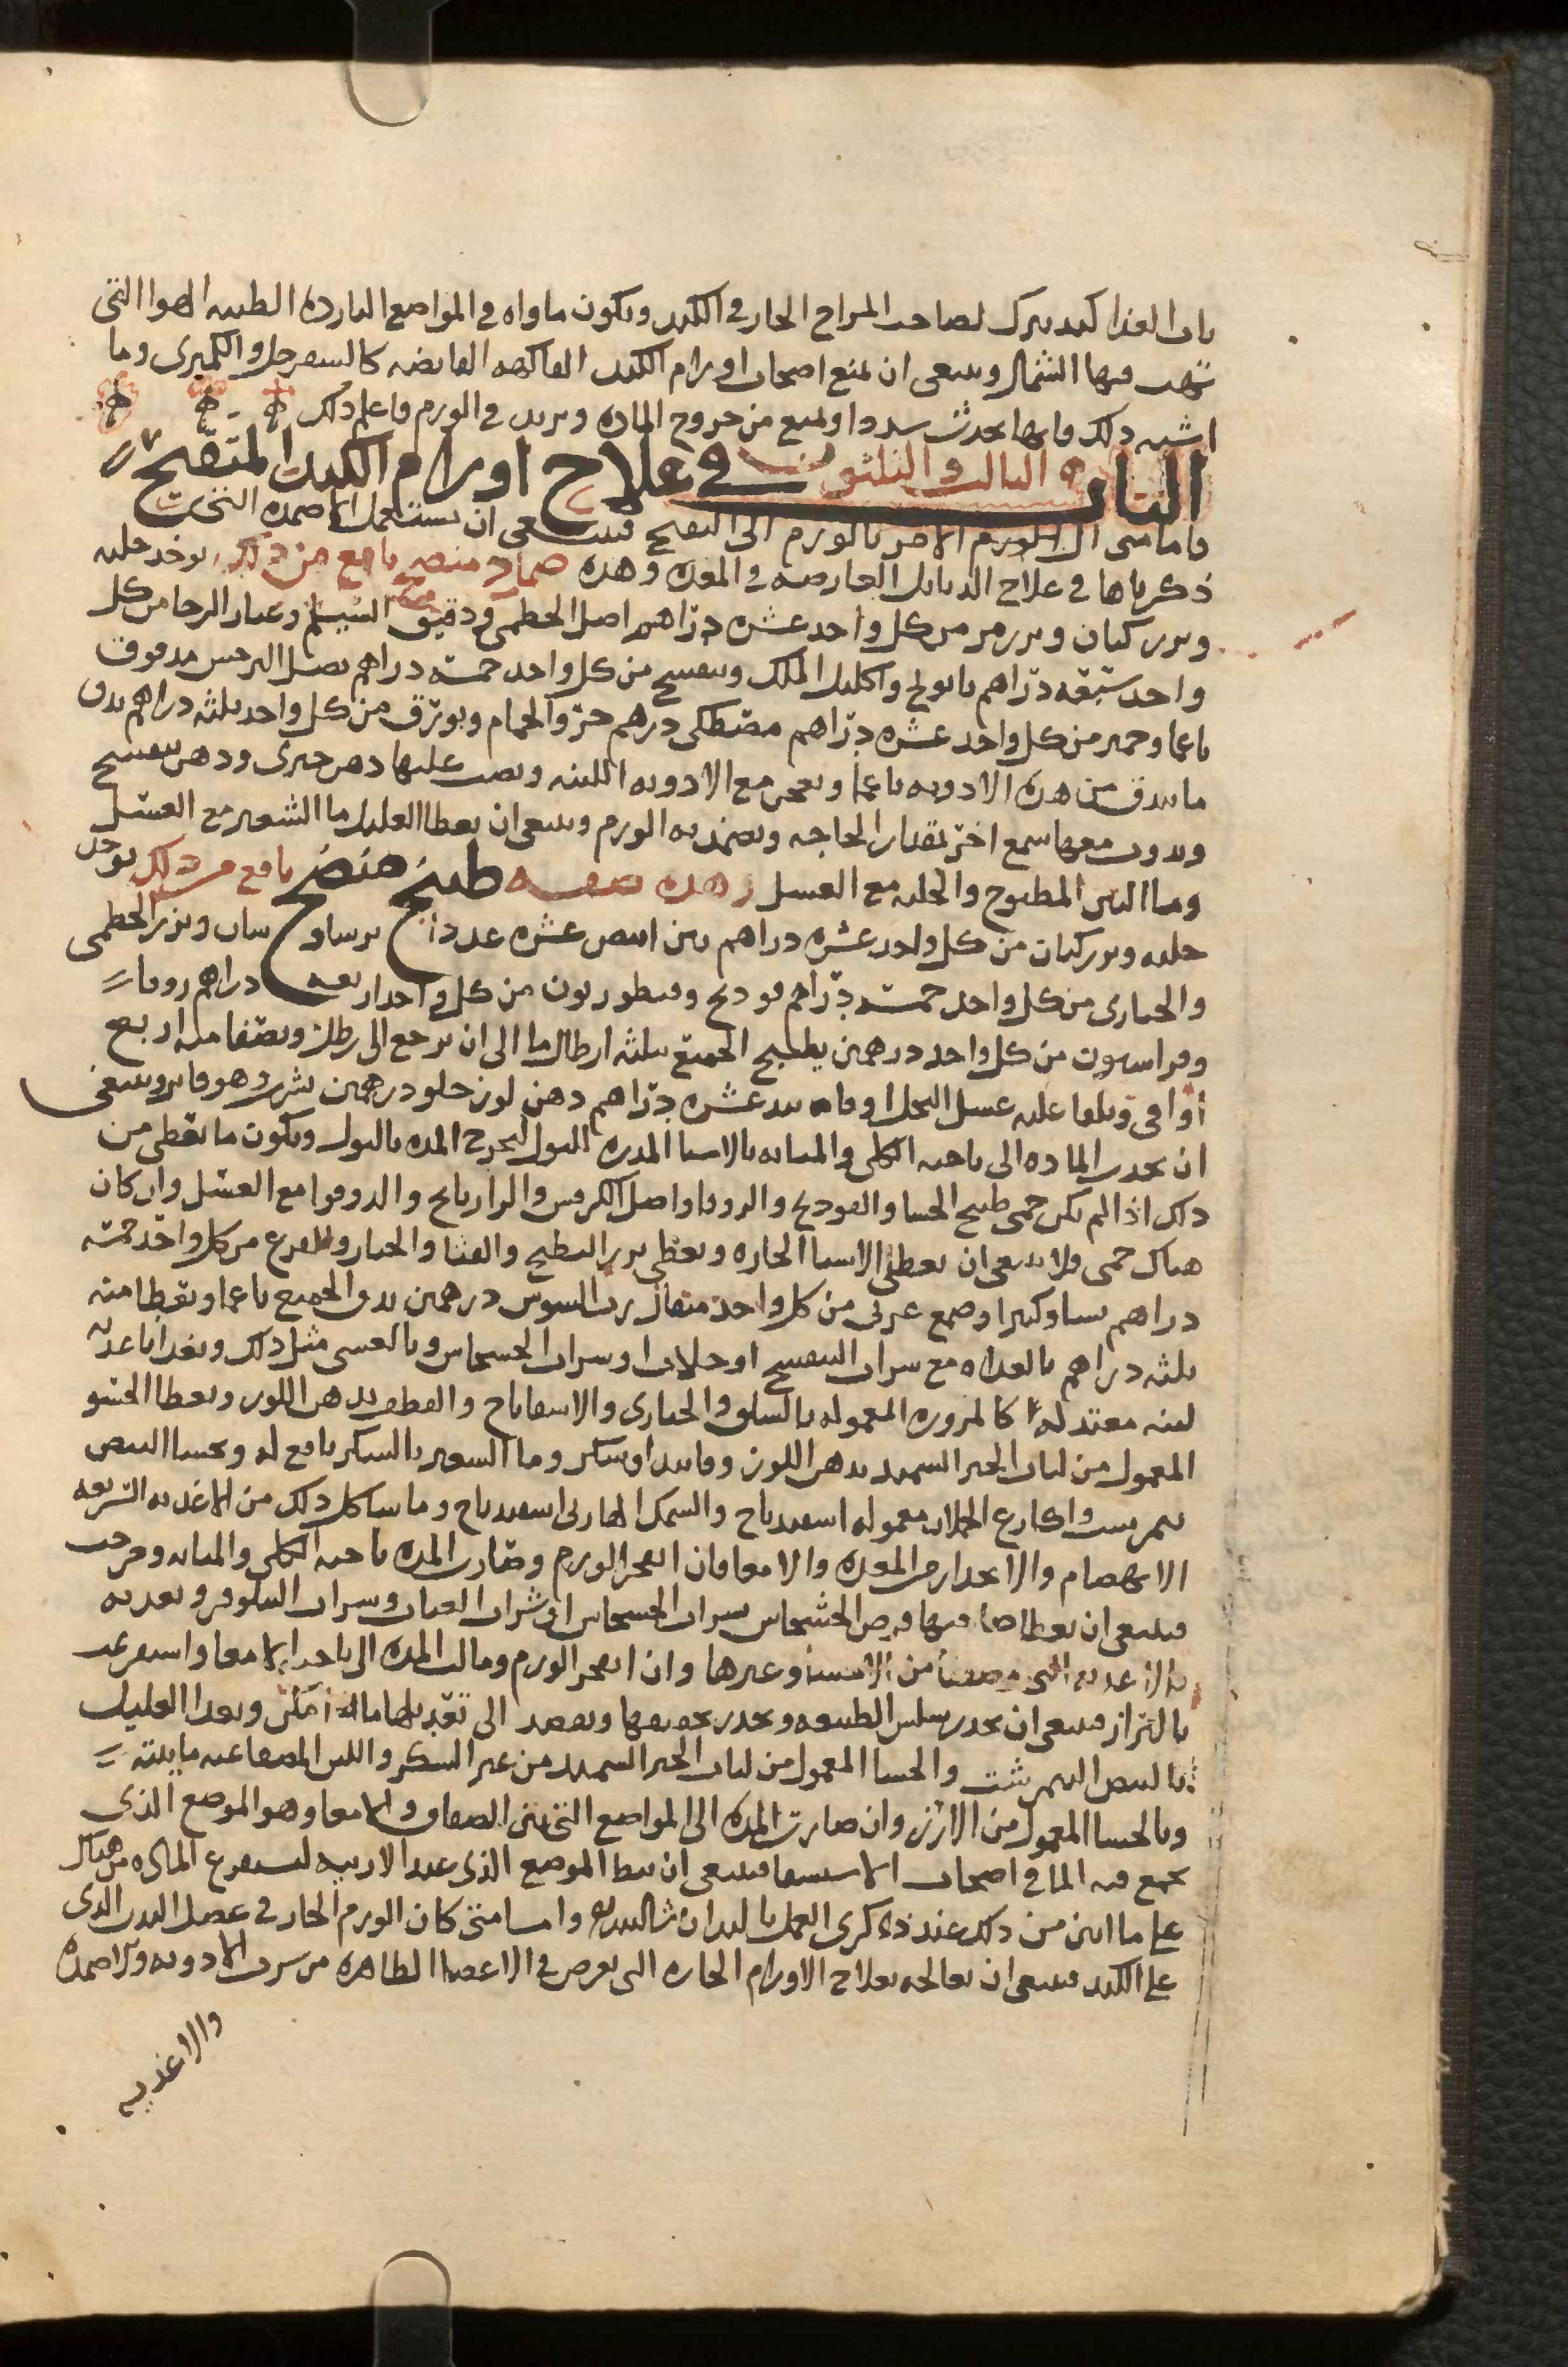 باب الغذا كبد بترك لصاحب المزاج الحار في الكبد ويكون ماواه في المواضع البارده الطيبه الهوا التى
تهب فيها الشمال وينبغى ان يمنع اصحاب اورام الكبد الفاكهه القابضه كالسفرجل والكمثرى وما
اشبه ذلك فانها تحدث سددا وتمنع من خروج الماده وتزيد في الورم فاعلم ذلك
الباب الثالث والثلثون في علاج اورام الكبد المتقيح
فاما متى ال الورم الامر بالورم الى التقيح فينبغى ان يستعمل الاضمده التى
ذكرناها في علاج الدبابل العارضه في المعده وهذه ضماد منضج نافع من ذلك يوخد حلبه
وبزر كتان وبزر مر من كل واحد عشره دراهم اصل الخطمى ودقيق الشيلم وغبار الرحا من كل
واحد سبعه دراهم بابونج واكليل الملك وبنفسج من كل واحد خمسه دراهم بصل النرجس مدقوق
ناعما وخمير من كل واحد عشره دراهم مصطكى درهم خرو الحمام وبورق من كل واحد ثلثه دراهم يدق
ما يندق من هذه الادويه ناعما ويعجن مع الادويه اللينه ويصب عليها دهن خيرى ودهن بنفسج
ويدوب معها شمع احمر بقدار الحاجه ويضمد به الورم وينبغى ان يعطا العليل ما الشعير مع العسل
وما التين المطبوخ والحلبه مع العسل وهذه صفه طبيخ منضج نافع من ذلك يوخد
حلبه وبزر كتان من كل واحد عشره دراهم تين ابيض عشره عددا برساوشان وبزر الخطمى
والخبازى من كل واحد خمسه دراهم فودنج وقنطوريون من كل واحد اربعه دراهم زوفا
وفراسيون من كل واحد درهمين يطبخ الجميع بثلثه ارطال ما الى ان يرجع الى رطل ويصفا منه اربع
اواقى ويلقا عليه عسل النحل او فانيد عشره دراهم دهن لوز حلو درهمين يشرب وهو فاتر وينبغى
ان تحدر الماده الى ناحيه الكلى والمثانه بالاشيا المدره للبول لتخرج المده بالبول ويكون ما يعطى من
ذلك اذا لم يكن حمى طبيخ الحسا والفودنج والزوفا واصل الكرفس والرازيانج والدوقوا مع العسل وان كان
هناك حمى فلا ينبغى ان يعطى الاشيا الحاره ويعطى بزر البطيخ والقثا والخيار والقرع من كل واحد خمسه
دراهم نشا وكثيرا وصمغ عربى من كل واحد مثقال رب السوس درهمين يدق الجميع ناعما ويعطا منه
ثلثه دراهم بالغداه مع شراب البنفسج او جلاب او شراب الخشخاش وبالعشى مثل ذلك ويغدا باغديه
لينه معتدله كالمزوره المعموله بالسلق والخبازى والاسفاناخ والقطف بدهن اللوز ويعطا الحسو
المعمول من لباب الخبز السميد بدهن اللوز وفانيد او سكر وما الشعير بالسكر نافع له ويحسا البيض
نيمرشت واكارع الجملان معموله اسفيدباج والسمك الهازلى اسفيدباج وما شاكل ذلك من الاغديه السريعه
الانهضام والانحدار من المعده والامعا فان انفجر الورم وصارت المده ناحيه الكلى والمثانه وخرجت
فينبغى ان يعطا صاحبها قرص الخشخاش بشراب الخشخاش او شراب العناب وشراب النيلوفر ويغديه
بالاغديه التى وصفنا من الاحسا وغيرها وان انفجر الورم ومالت المده الى ناحيه الامعا واستفرغت
بالبراز فينبغى ان تحدر سلس الطبيعه وتحدر تجفيفها ويقصد الى تغديلها ما امكن ويغدا العليل
بالبيض النيمرشت والحسا المعمول من لباب الخبز السميد من غير السكر واللبن المصفا عنه مايته
وبالحسا المعمول من الارز وان صارت المده الى المواضع التى بين الصفاق والامعا وهو الموضع الذى
يجمع فيه الما في اصحاب الاستسقا فينبغى ان يبط الموضع الذى عند الاربيه ليستفرغ الماده من هناك
على ما ابين من ذلك عند ذكرى العمل باليد ان شا الله واما متى كان الورم الحار في عضل البدن الذى
على الكبد فينبغى ان تعالجه بعلاج الاورام الحاره التى تعرض في الاعضا الظاهره من شرب الادويه والاضمده
والاغديه